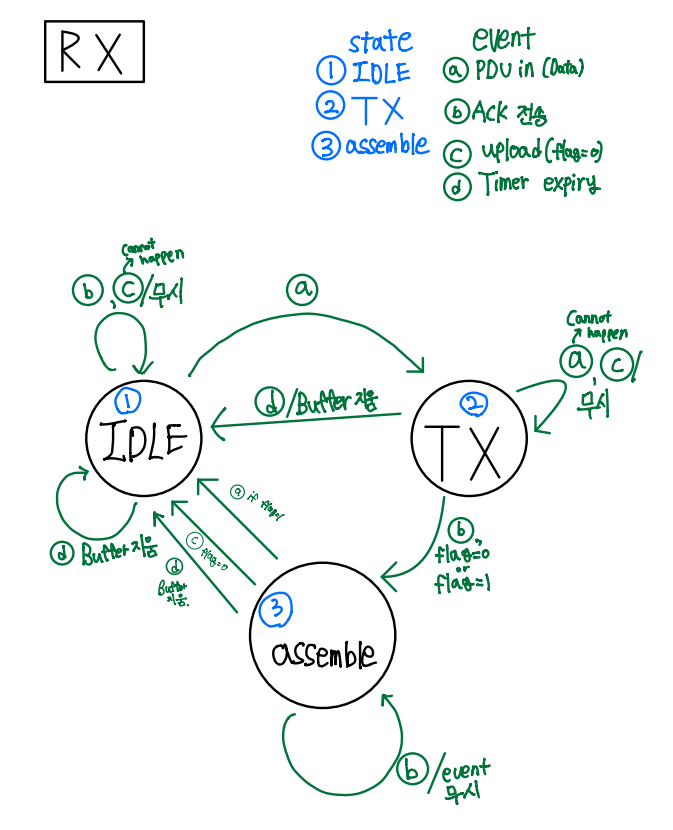 RX
state
① IDLE
② TX
③ assemble
event
ⓐ PDU in (Data)
ⓑ Ack 전송
ⓒ upload (flag=0)
ⓓ Timer expiry
Cannot
happen
ⓑ, ⓒ/무시
ⓐ
Cannot
happen
ⓐ, ⓒ/
무시
ⓓ/Buffer 지움
①
IDLE
②
TX
ⓓ Buffer 지움
ⓐ if flag=1
ⓒ flag=0
ⓓ
Buffer
지움.
ⓑ,
flag=0
or
flag=1
③
assemble
ⓑ/event
무시